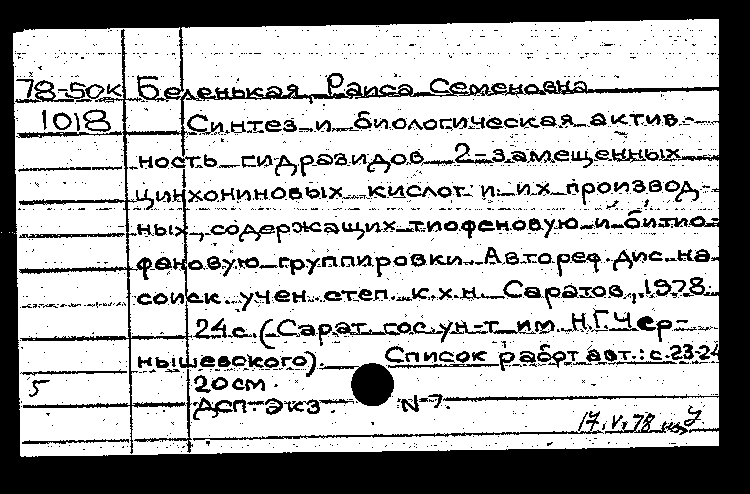 78-50к Беленькая, Раиса Семеновна
1018 Синтез и биологическая актив-
ность гидразидов 2-замещенных
цинхониновых кислот и их производ-
ных, содержащих тиофеновую и битио-
феновую группировки. Автореф. дис. на
соиск. учен. степ. к.х.н. Саратов, 1978.
24с. (Сарат. гос. ун-т им. Н.Г. Чер-
нышевского). Список работ авт.: с. 23-24
5 20см.
ДСП. Экз. N 7.
17.V.78